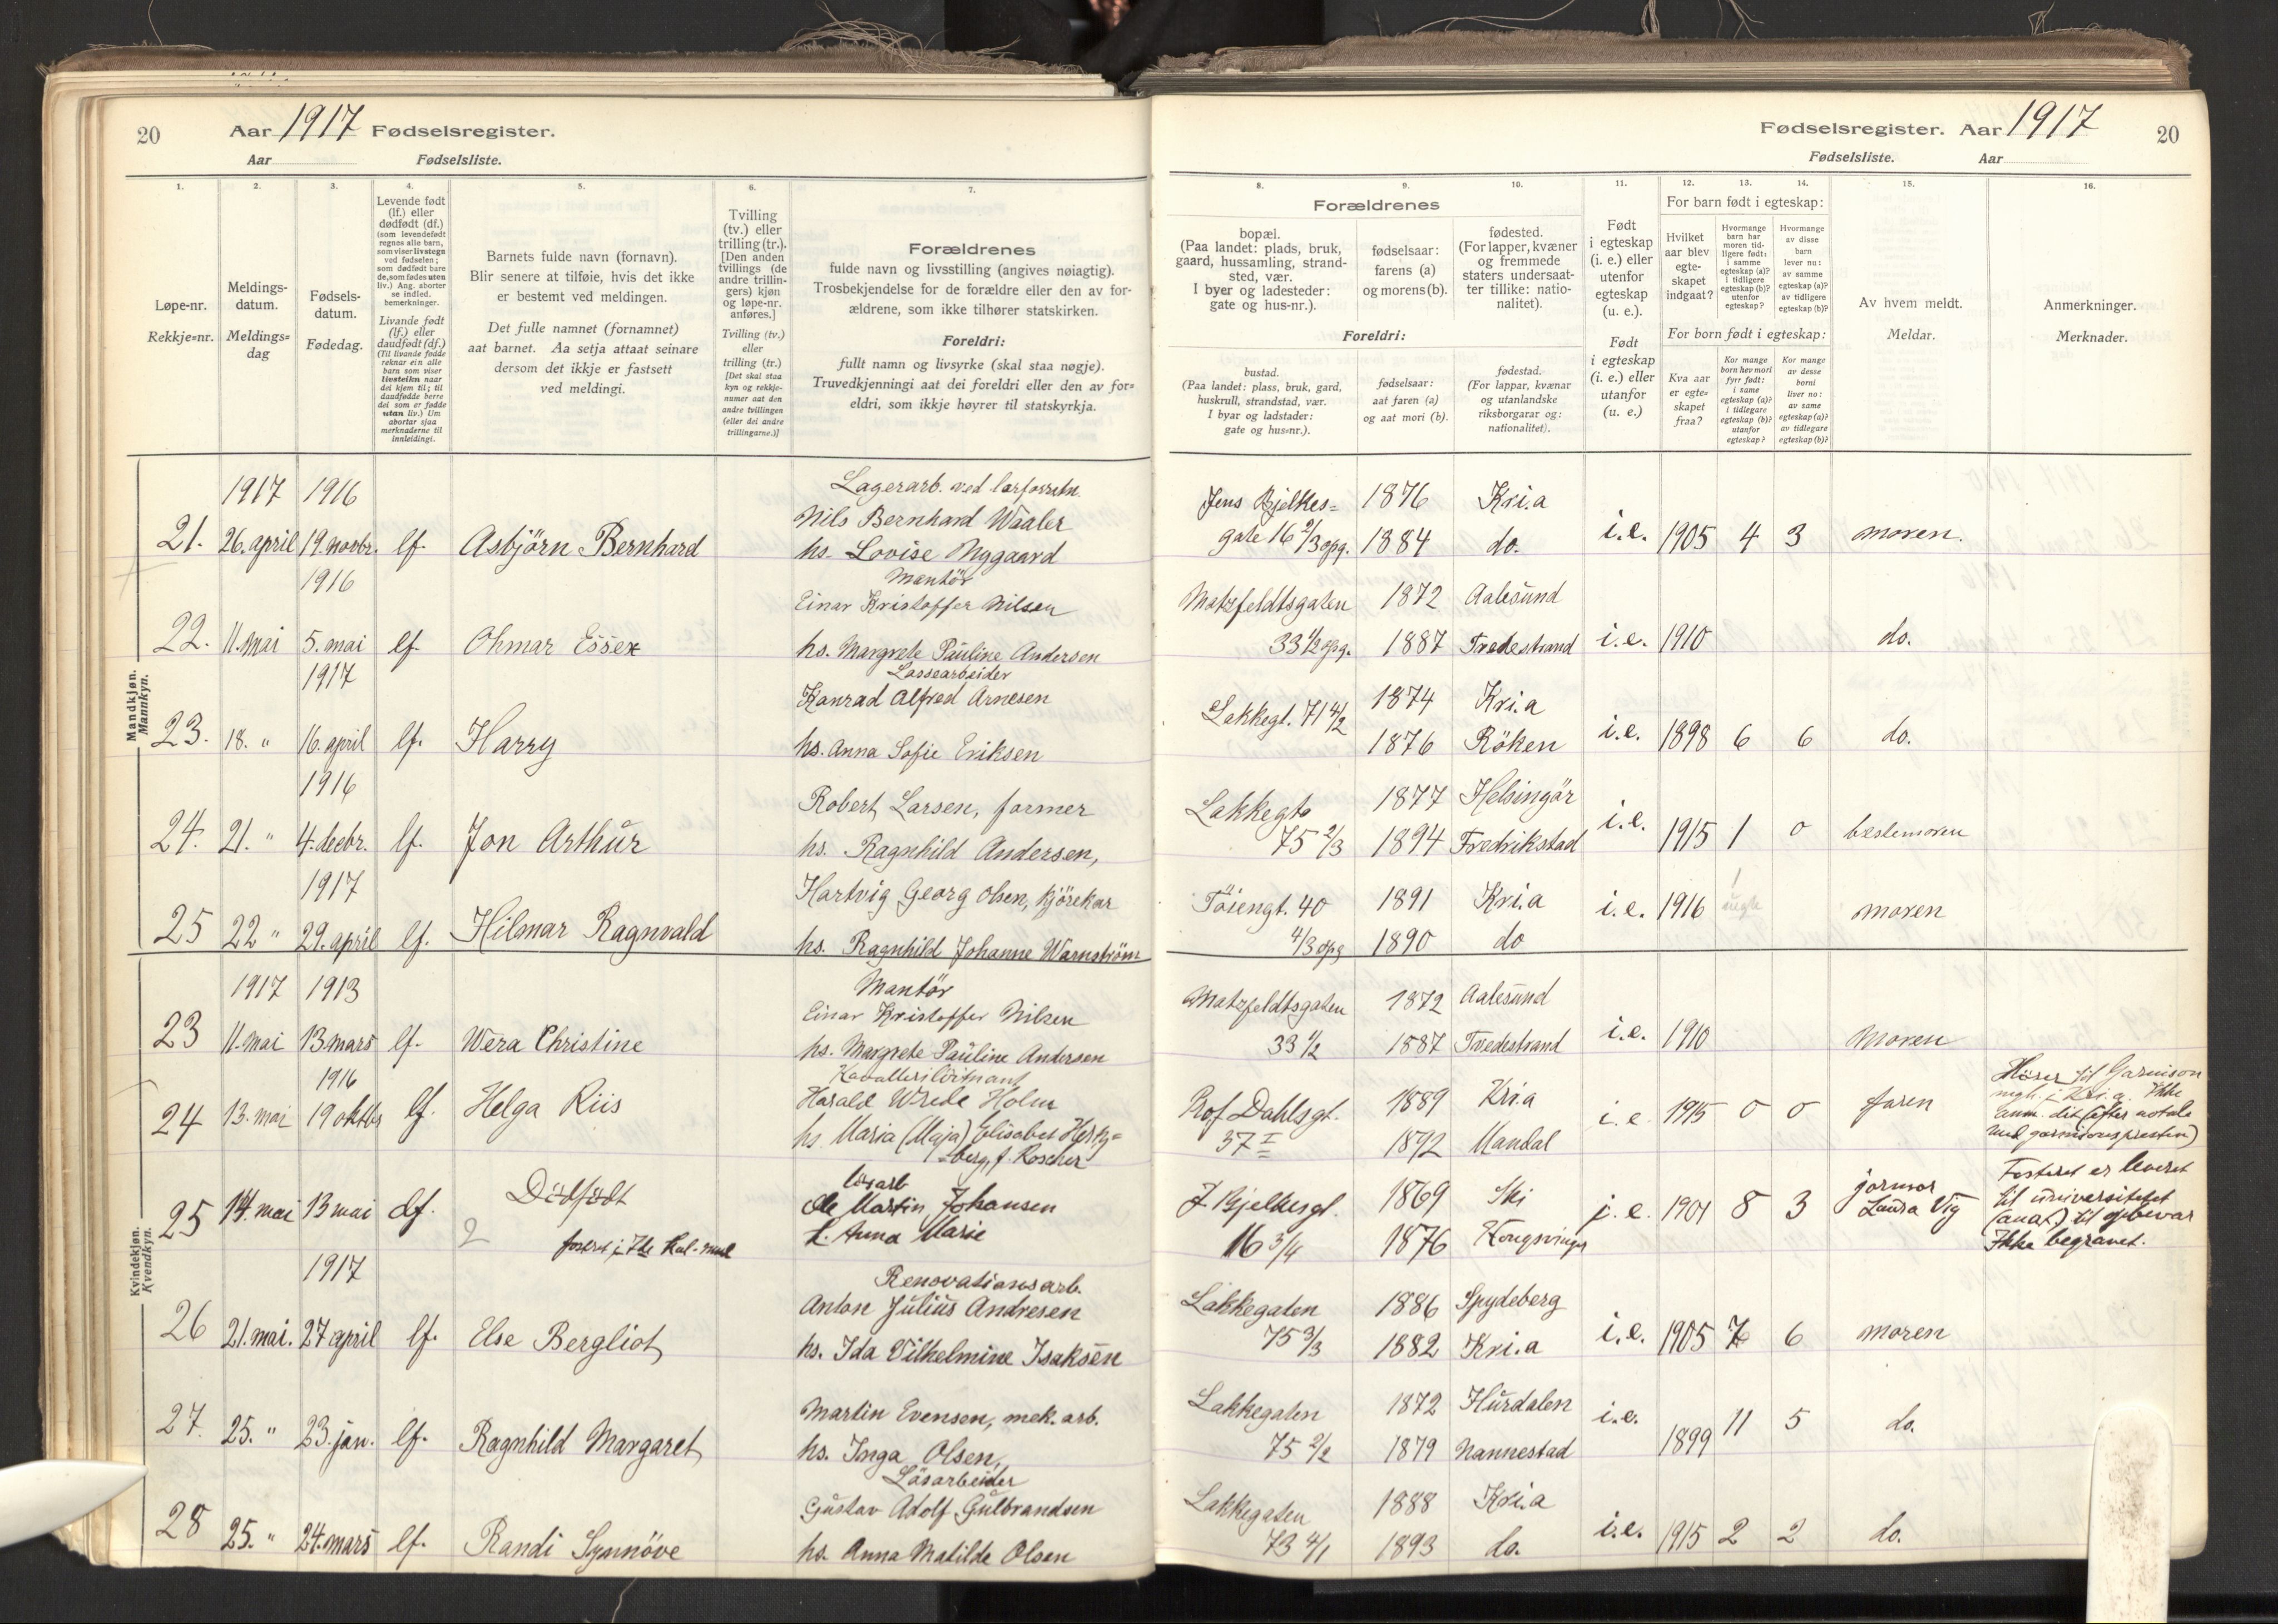 20 Aar 1917 Fødselsregister.
Aar Fødselsliste.
1. 2. 3. 4. 5. 6. 7.
Løpe-nr.
Rekkje=nr.
Meldings-
datum.
Meldings=
dag
Fødsels-
datum.
Fødedag.
Levende født
(lf.) eller
dødfødt (df.)
(som levendefødt
regnes alle barn,
som viser livstegn
ved fødselen;
som dødfødt bare
de, som fødes uten
liv.) Ang. aborter
se indled.
bemerkninger.
Livande født
(lf.) eller
daudfødt (df.)
(Til livande fødde
reknar ein alle
barn som viser
livsteikn naar
dei kjem til; til
daudfødde berre
dei som er fødde
utan liv.) Um
abortar sjaa
merknaderne til
innleidingi.
Barnets fulde navn (fornavn).
Blir senere at tilføie, hvis det ikke
er bestemt ved meldingen.
Det fulle namnet (fornamnet)
aat barnet. Aa setja attaat seinare
dersom det ikkje er fastsett
ved meldingi.
Tvilling
(tv.) eller
trilling (tr.).
[Den anden
tvillings (de
andre trillin-
gers) kjøn
og løpe-nr.
anføres.]
Tvilling (tv.)
eller
trilling (tr.)
[Det skal staa
kyn og rekkje-
numer aat den
andre tvillingen
(eller dei andre
trillingarne.)]
Forældrenes
fulde navn og livsstilling (angives nøiagtig).
Trosbekjendelse for de forældre eller den av for-
ældrene, som ikke tilhører statskirken.
Foreldri:
fullt namn og livsyrke (skal staa nøgje).
Truvedkjenningi aat dei foreldri eller den av for=
eldri, som ikkje høyrer til statskyrkja.
Mandkjøn.
Mannkyn.
1917 1916 Lagerarb. ved
Nils Bernhard Waaler
21. 26. april 19. novbr. lf. Asbjörn Bernhard hs. Lovise Nygaard
1916 Mantör
Einar Kristoffer Nilsen
22. 11. mai 5. mai lf. Ohmar Essex hs. Margrete Pauline Andersen
1917 Lossearbeider
Konrad Alfred Arnesen
23. 18. " 16. april lf. Harry hs. Anna Sofie Eriksen
1916 Robert Larsen, former
24. 21. " 4. decbr. lf. Jon Arthur hs. Ragnhild Andersen,
1917 Hartvig Georg Olsen, kjörekar
25 22 " 29. april lf. Hilmar Ragnvald hs. Ragnhild Johanne Warnström
Kvindekjøn.
Kvendkyn.
1917 1913 Mantör
Einar Kristoffer Nilsen
23 11. mai 13. mars lf. Wera Christine hs. Margrete Pauline Andersen
1916 Kavalleriløitnant
Harald Wrede Holm
24 13. mai 19 oktbr lf. Helga Riis hs Maria (Maja) Elisabet Hertz=
=berg, f. Roscher
lösarb
25 14. mai 13 mai df. Dödfødt Ole Martin Johansen
2 H. Anna Marie
1917 Renovationsarb.
Anton Julius Andresen
26 21. mai. 27 april lf. Else Bergliot hs. Ida Vilhelmine Isaksen
Martin Evensen, mek. arb.
27. 25. " 23. jan. lf. Ragnhild Margaret hs. Inga Olsen,
Lösarbeider
Gustav Adolf Gulbrandsen
28 25. " 24. mars lf. Randi Synnöve hs. Anna Matilde Olsen
Fødselsregister. Aar 1917 20
Fødselsliste. Aar
8. 9. 10. 11. 12. 13. 14. 15. 16.
Forældrenes
bopæl.
(Paa landet: plads, bruk,
gaard, hussamling, strand-
sted, vær.
I byer og ladesteder:
gate og hus-nr.).
fødselsaar:
farens (a)
og morens (b).
fødested.
(For lapper, kvæner
og fremmede
staters undersaat-
ter tillike: natio-
nalitet).
Foreldri:
bustad.
(Paa landet: plass, bruk, gard,
huskrull, strandstad, vær.
I byar og ladstader:
gate og hus=nr.).
fødselsaar:
aat faren (a)
og aat mori (b).
fødestad.
(For lappar, kvænar
og utanlandske
riksborgarar og:
nationalitet).
Født
i egteskap
(i. e.) eller
utenfor
egteskap
(u. e.).
Født
i egteskap
(i. e.) eller
utanfor
(u. e.)
For barn født i egteskap:
Hvilket
aar blev
egte-
skapet
indgaat?
Hvormange
barn har
moren tid-
ligere født:
i samme
egteskap (a)?
i tidligere
egteskap (b)?
utenfor
egteskap?
Hvormange
av disse
barn
lever nu:
av samme
egteskap (a)?
av tidligere
egteskap (b)?
For born født i egteskap:
Kva aar
er egte=
skapet
fraa?
Kor mange
born hev mori
fyrr født:
i same
egteskap (a)?
i tidlegare
egteskap (b)?
utanfor
egteskap?
Kor mange
av desse
borni
liver no:
av same
egteskap (a)?
av tidlegare
egteskap (b)?
Av hvem meldt.
Meldar.
Anmerkninger.
Merknader.
Jens Bjelkes= 1876 Kri.a
gate 16 2/3 opg. 1884 do. i.e. 1905 4 3 moren.
Motzfeldtsgaten 1872 Aalesund
33 1/2 opg. 1887 Tvedestrand i.e. 1910 do.
Lakkegt. 71 4/2 1874 Kri.a
1876 Röken i.e. 1898 6 6 do.
Lakkegt. 1877 Helsingör
75 2/3 1894 Fredrikstad i.e. 1915 1 0 bestemoren
Töiengt. 40 1891 Kri.a i.e. 1916 moren
4/3 opg 1890 do
Motzfeldtsgaten 1872 Aalesund
33 1/2 1887 Tvedestrand i.e. 1910 Moren
Prof. Dahlsgt. 1889 Kri.a
37 I 1892 Mandal i.e. 1915 0 0 faren
Hører til Garnison
mgh. i Kri.a. Ikke
anm. dit (efter avtale
med garnisonspresten)
J. Bjelkesgt. 1869 Ski
16 3/4 1876 Kongsvinger i.e. 1901 8 3 jormor
Laura Vig
Fosteret er leveret
til universitetet
(anat.) til opbevar
Ikke begravet.
Lakkegaten 1886 Spydeberg
75 3/3 1882 Kri.a i.e. 1905 7 6 moren
Lakkegaten 1872 Hurdalen
75 2/2 1879 Nannestad i.e. 1899 11 5 do.
Lakkegaten 1888 Kri.a
73 4/1 1893 do. i.e. 1915 2 2 do.